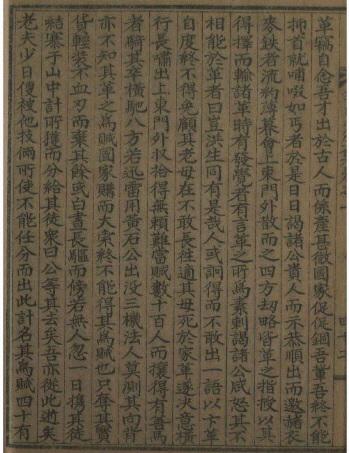 革竊自念吾才出於古人而係產甚微國家促促錮吾輩吾終不能
抑首就哺啜如丐者於是日日謁諸公貴人而示恭順出而邀諸衣
麥鉄者流約薄暮會上東門外散而之四方刼略皆革之指揮以其
得擇而輸諸革時有發學者有言革之所爲素刺謁諸公咸怒其不
相能於革者曰豈洪生同有是哉人或詗得而不敢出一語以卞革
自度終不得免顧其老母在不敢長往適其母死於家革遂大意橫
行長嘯出上東門外収拾得無賴難當賊數十百人而擴得有善馬
者騎其卒橫馳八方若迅雷用黃石公出沒三機法人莫測其向背
亦不知其革之爲賊國家購而大索終不能得其爲賊也只奪其實
貨輕裝不血刃而棄其餘或白晝長驅而傍若無人忽一日携其徒
結寨子山中計所獲而分給其徒衆曰公等其去矣吾亦從此逝矣
老夫少日僾被他技倆所使不能任分而出此計名其爲賊四十有